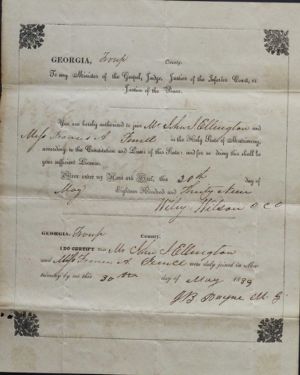 GEORGIA, Troup County.
To any Minister of the Gospel, Judge, Justice of the Inferior Court, or
Justice of the Peace.
You are hereby authorized to join Mr John S Ellington and
Miss Frances A. in the Holy State of Matrimony,
according to the Constitution and Laws of this State; and for so doing this shall be
your sufficient License.
Given under my Hand and Seal, this 28th day of
May Eighteen Hundred and Thirty Nine
Wiley Wilson C C O
GEORGIA, Troup County.
I DO CERTIFY that Mr John S Ellington
and Miss Frances A. were duly joined in Ma-
trimony by me this 30th day of May 1839
J B Payne M G